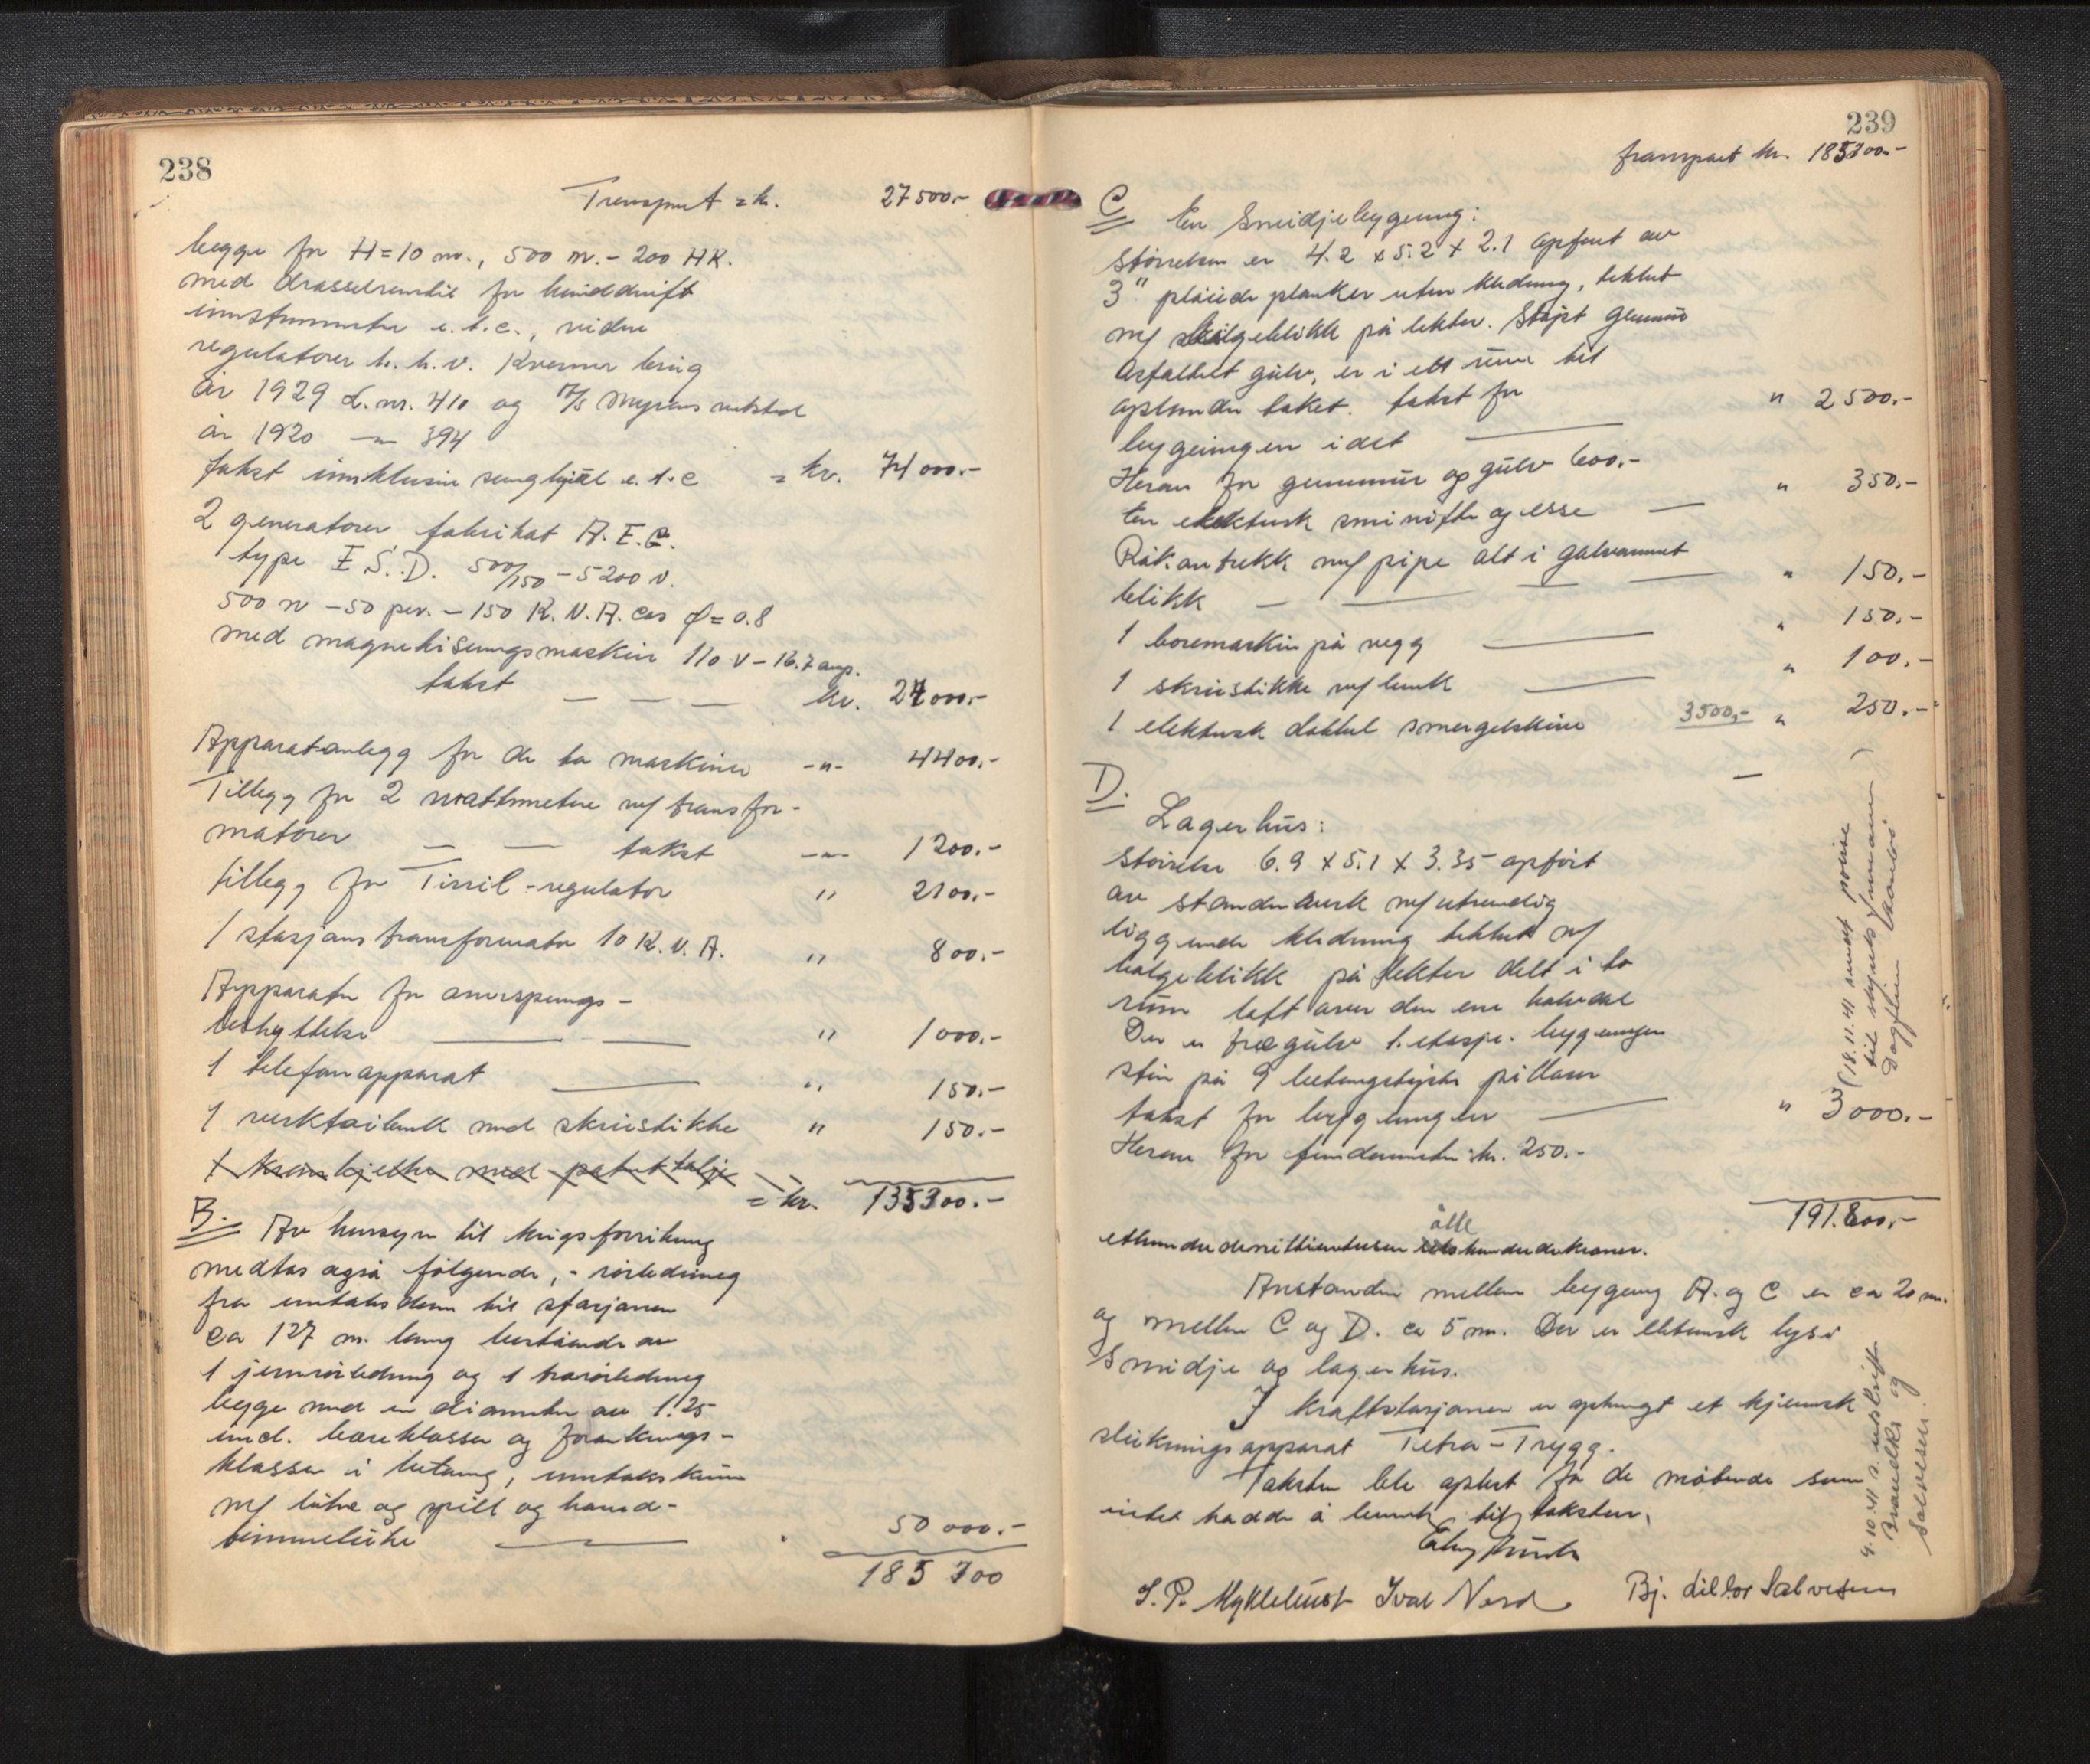 238
Transport = kr. 27500.-
begge for H=10 m., 500 m.- 200 HK.
med drosselventil for hånddrift
instrumenter e.t.c., videre
regulatorer h.h.v. Kværner brug
år 1929 L.nr. 410 og A/S Myrens verksted
år 1920 —"— 394
takst innklusiv svinghjul e.t.c = kr. 74000.-
2 generatorer fabrikat A.E.G.
type E.S.D. 500/150 - 5200 v.
500 n - 50 per. - 150 K.V.A. cos φ = 0.8
med magnetiseringsmaskin 110 v - 16.7 amp.
takst — — — kr. 24000.-
Apparatanlegg for de to maskiner -"- 4400.-
Tillegg for 2 wattmetere m/ transfor-
matorer — — takst -"- 1200.-
tillegg for Tirril-regulator " 2100.-
1 stasjonstransformator 10 K.V.A. " 800.-
Apparater for overspennings-
beskyttelse — — " 1000.-
1 telefonapparat — " 150.-
1 verktøibenk med skruestikke " 150.-
= kr. 135300.-
B. Av hensyn til krigsforsikring
medtas også følgende, - rørledning
fra inntaksdam til stasjonen
ca 127 m. lang bestående av
1 jernrørledning og 1 trærørledning
begge med en diameter av 1.25
incl. bæreklosser og forankrings-
klosser i betong, inntakskum
m/ luke og spill og hånd-
tømmeluke — 50 000.-
185 300
239
transport kr. 185300.-
C En Smidjebygning:
størrelsen er 4.2 x 5.2 x 2.1 opført av
3" pløiede planker uten kledning, tekket
m/ bølgeblikk på lekter. Støpt grunnmur
Asfaltelt gulv, er i ett rum til
opunder taket. takst for
bygningen i det — " 2500.-
Herav for grunnmur og gulv 600.-
En elektrisk smivifte og esse — " 350.-
Røkavtrekk m/ pipe alt i galvanisert
blikk — — — — " 150.-
1 boremaskin på vegg — " 150.-
1 skruestikke m/ benk — " 100.-
1 elektrisk dobbel smergelskive 3500,- " 250.-
D.
Lagerhus:
størrelse 6.9 x 5.1 x 3.35 opført
av standerverk m/ utvendig
liggende kledning tekket m/
bølgeblikk på lekter delt i to
rum loft over den ene halvdel
Der er tregulv 1. etasje. bygningen
står på 9 betongstøpte pillarer
takst for bygningen — " 3000.-
Herav for fundamenter kr. 250.-
191.800,-
åtte
etthundredenittientusen hundredekroner.
Avstanden mellem bygning A. og C er ca 20 m.
og mellem C og D. ca 5 m. Der er elektrisk lys i
Smidje og lagerhus.
I kraftstasjonen er ophengt et kjemisk
slukningsapparat Tetra-Trygg.
Taksten ble oplest for de møtende som
intet hadde å bemerke til taksten.
S. P. Myklebust Ivar Nord Bj. Lillor Salvesen
(18.11.41 sendt polise
til skjønsformann
Dagfinn )
9.10.41 2 utskrifter
og
Salvesen.